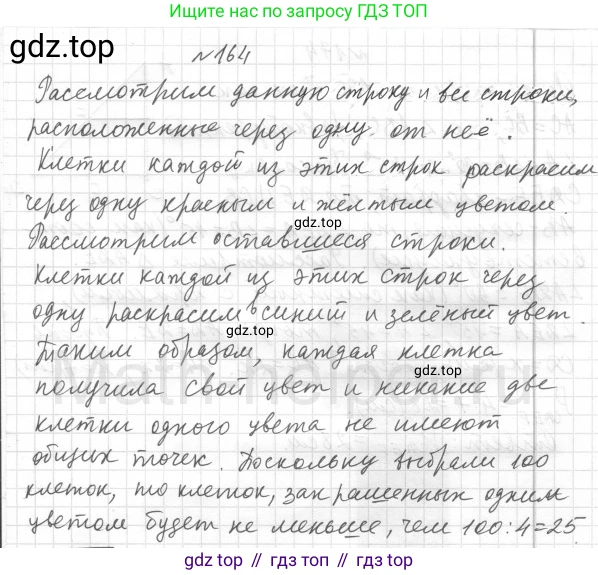 Ищите ГДЗ по запросу ГДЗ ТОП
gdz.top
№164
Рассмотрим данную строку и все строки,
расположенные через одну от неё.
Клетки каждой из этих строк раскрасим
через одну красным и жёлтым цветом.
gdz.top
Рассмотрим оставшиеся строки.
Клетки каждой из этих строк через
одну раскрасим в синий и зелёный цвет.
gdz.top
Таким образом, каждая клетка
получила свой цвет и никакие две
клетки одного цвета не имеют
общих точек. Поскольку выбрали 100
клеток, то клеток, закрашенных одним
цветом будет не меньше, чем 100:4=25
gdz.top // гдз.топ // gdz.top